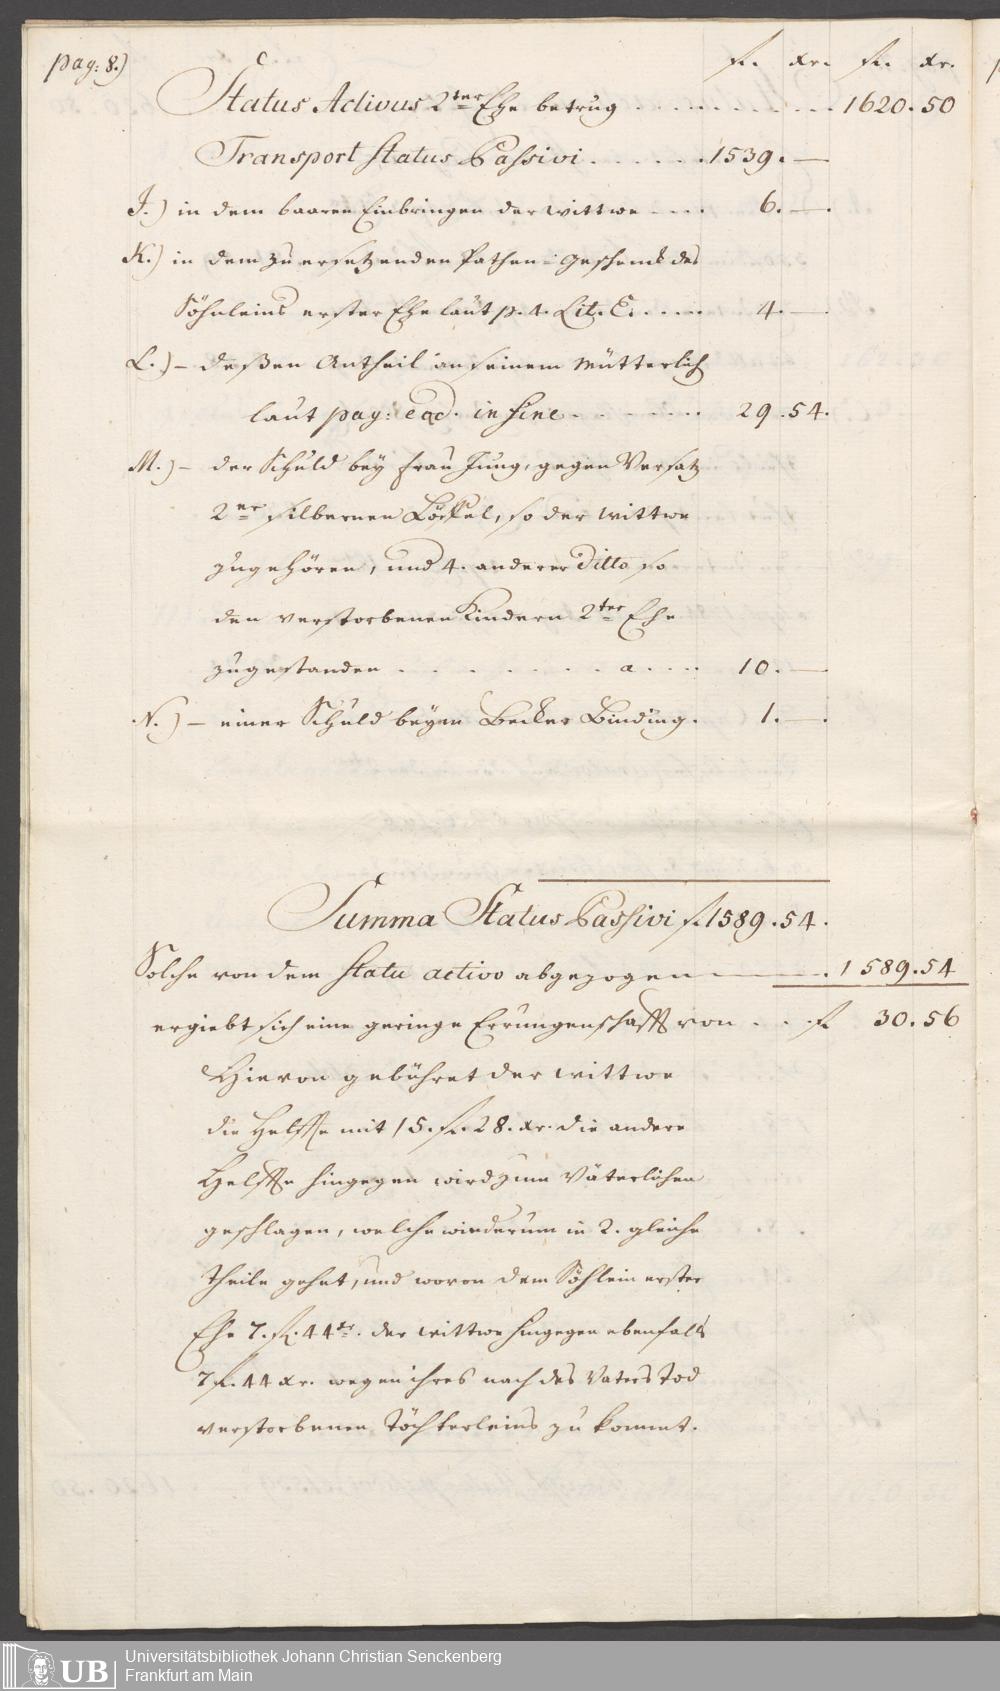 pag: 8.)
fl. xr. fl. xr.
Status Activus 2ter Ehe betrug . . . . . . . . . . 1620. 50
Transport Status Passivi . . . . . . 1539. —
J.) in dem baaren Einbringen der Wittwe . . . . 6. —
K.) in dem zu ersetzenden Pathen-Geschenck des
Söhnleins erster Ehe laut p. 4. Lit. C. . . . . 4. —
L.) – deßen Antheil an seinem Mütterlich
laut pag: ead. in fine . . . . . . . 29. 54.
M.) – der Schuld bey Frau Jung, gegen Versatz
2er silbernen Löffel, so der Wittwe
zugehören, und 4. anderer Ditto so
den verstorbenen Kindern 2ter Ehe
zugestanden . . . . . . . . a . . . . 10. —
N.) – einer Schuld beym Becker Binding. 1. —
Summa Status Passivi f. 1589. 54.
Solche von dem Statu activo abgezogen —— . 1589. 54
ergiebt sich eine geringe Errungenschafft von . . . fl 30. 56
Hievon gebühret der Wittwe
die Helffte mit 15. fl. 28. xr. die andere
Helffte hingegen wird zum Väterlichen
geschlagen, welche wiederum in 2. gleiche
Theile gehet, und wovon dem Söhlein erster
Ehe 7. fl. 44 xr. der Wittwe hingegen ebenfalls
7 fl. 44 xr. wegen ihres nach des Vaters Tod
verstorbenen Töchterleins zu kommt.
UB
Universitätsbibliothek Johann Christian Senckenberg
Frankfurt am Main